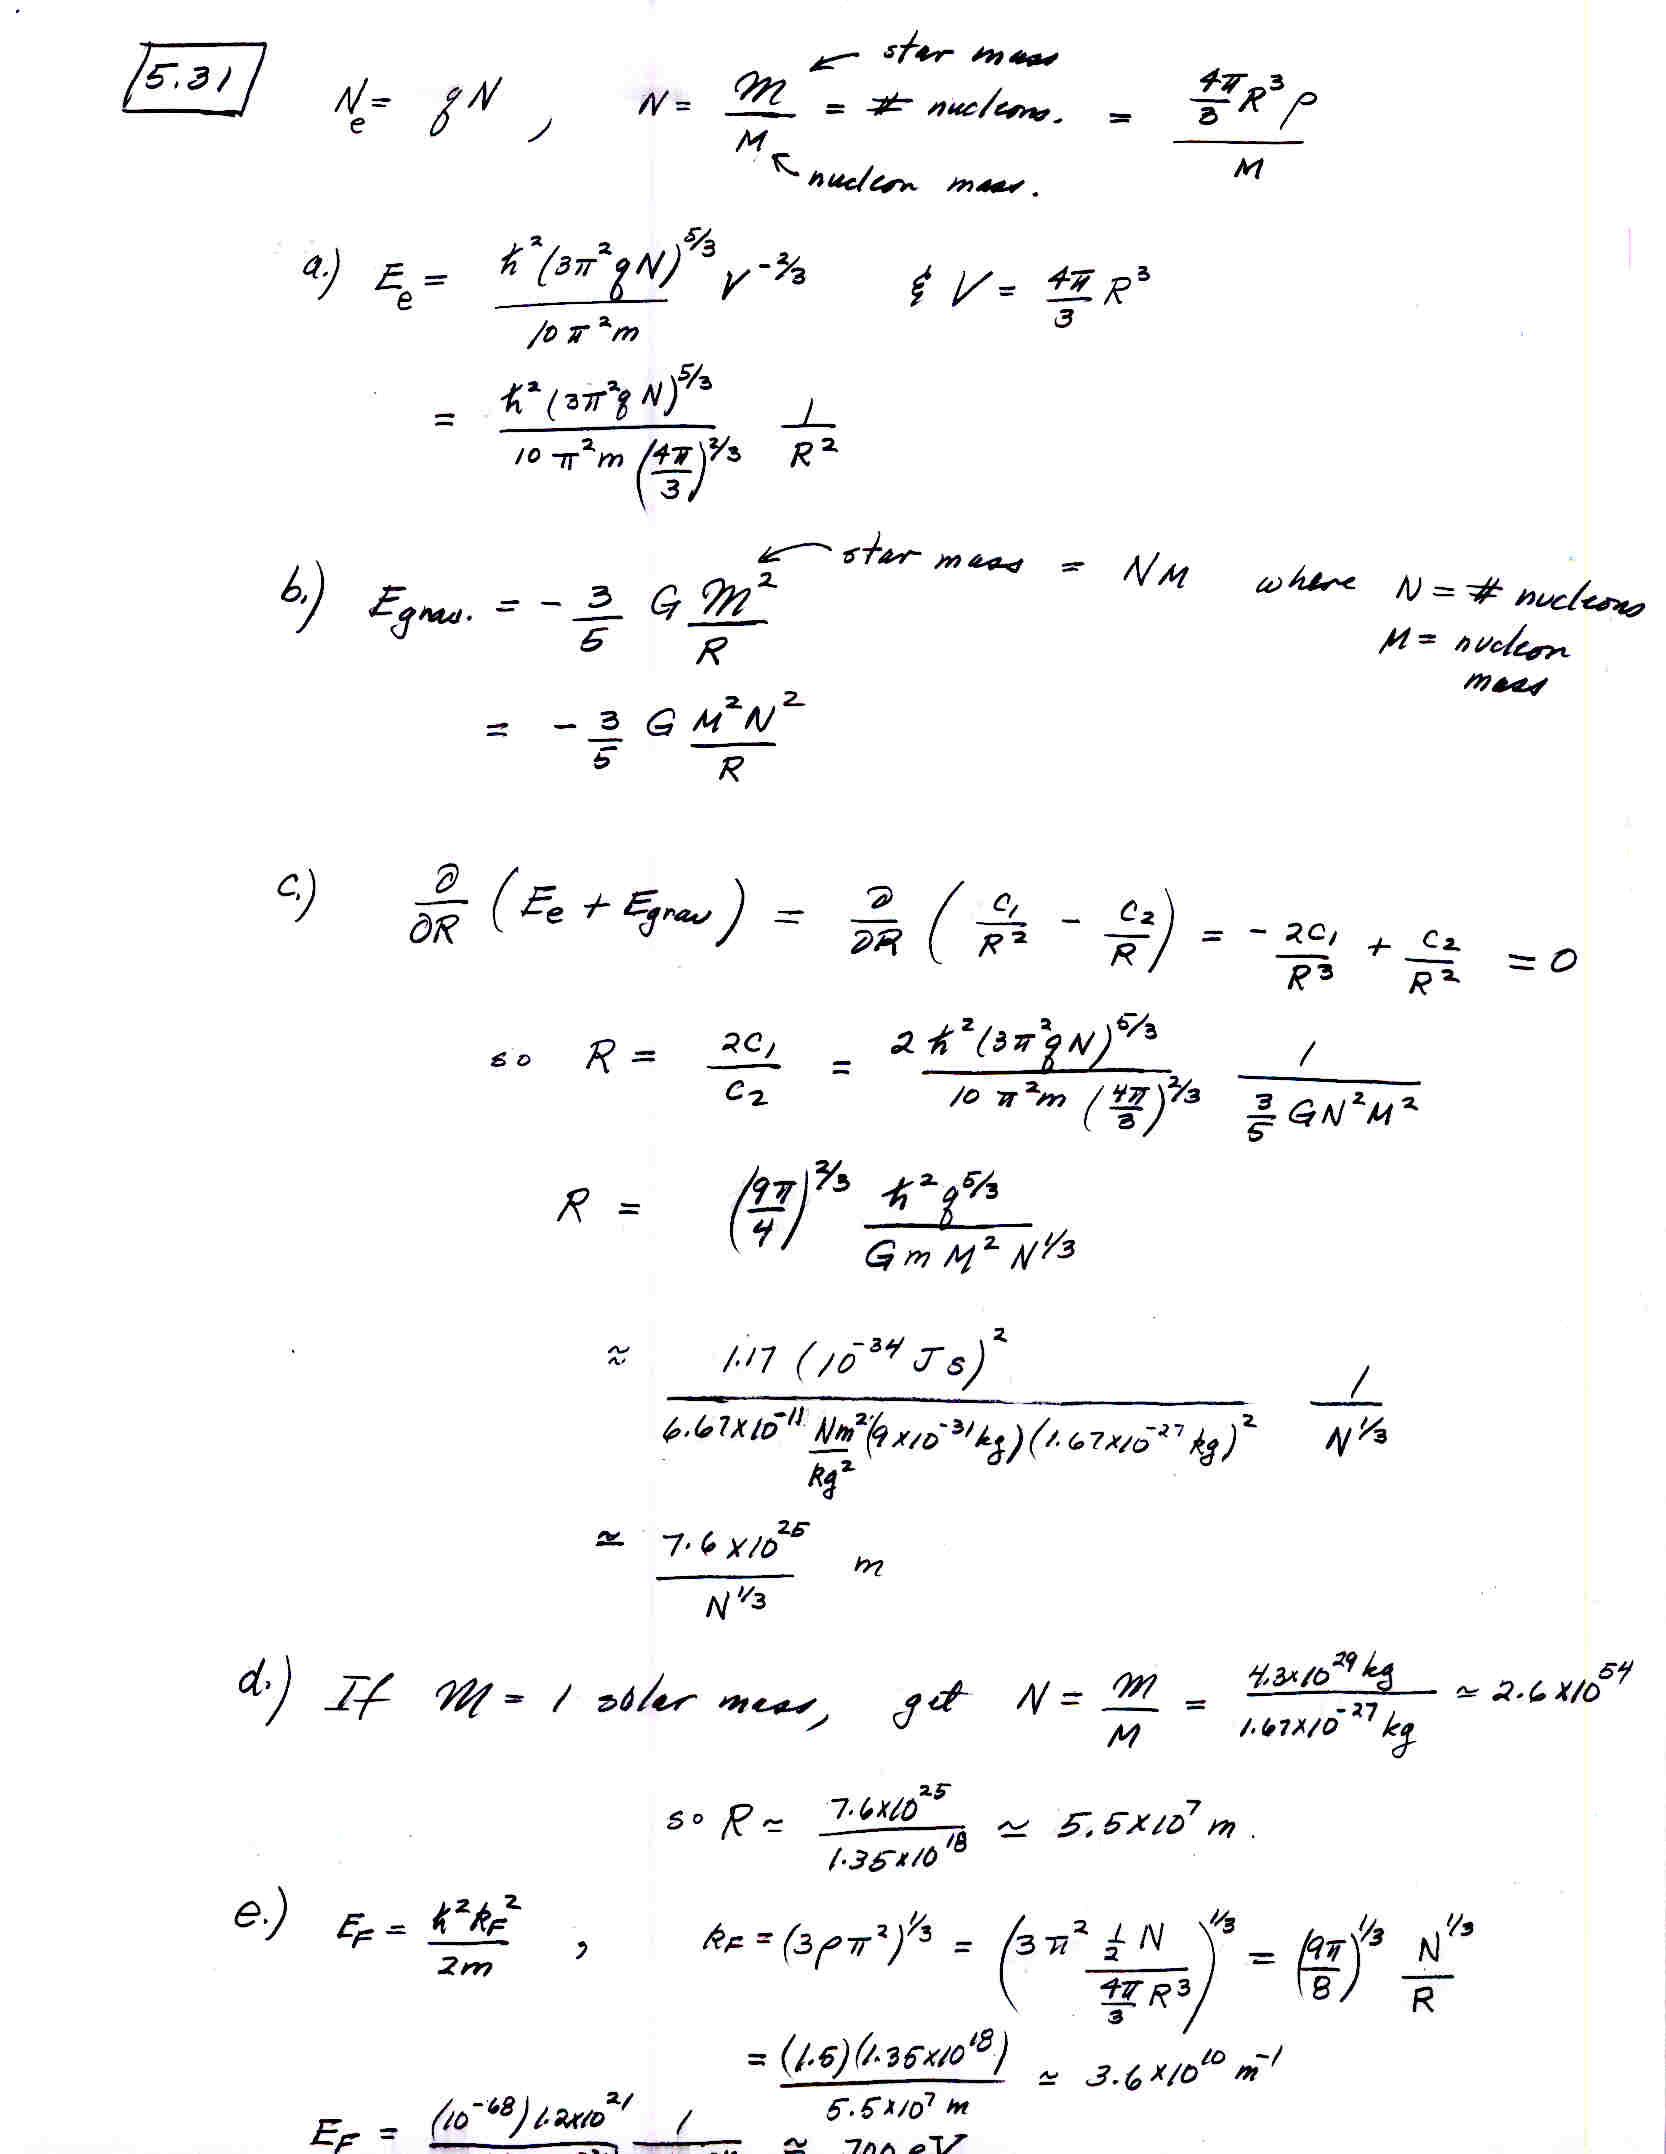 5.31
N_e = qN , N = 𝓜/M = # nucleons. = (4π/3 R³ρ)/M
← star mass
↖ nucleon mass.
a.) E_e = ħ²(3π²qN)^5/3 / 10π²m V^-2/3 & V = 4π/3 R³
= ħ²(3π²qN)^5/3 / 10π²m (4π/3)^2/3 1/R²
b.) E_grav. = - 3/5 G 𝓜²/R ← star mass = NM where N = # nucleons
M = nucleon
mass
= - 3/5 G M²N²/R
c.) ∂/∂R (E_e + E_grav) = ∂/∂R (C₁/R² - C₂/R) = - 2C₁/R³ + C₂/R² = 0
so R = 2C₁/C₂ = 2ħ²(3π²qN)^5/3 / 10π²m (4π/3)^2/3 1 / 3/5 GN²M²
R = (9π/4)^2/3 ħ²q^5/3 / GmM²N^1/3
≈ 1.17 (10^-34 J s)² / 6.67×10^-11 Nm²/kg² (9×10^-31 kg)(1.67×10^-27 kg)² 1/N^1/3
≃ 7.6×10^25 / N^1/3 m
d.) If 𝓜 = 1 solar mass, get N = 𝓜/M = 4.3×10^29 kg / 1.67×10^-27 kg ≃ 2.6×10^54
so R ≃ 7.6×10^25 / 1.35×10^18 ≃ 5.5×10^7 m.
e.) E_F = ħ²k_F² / 2m , k_F = (3ρπ²)^1/3 = (3π² ½N / 4π/3 R³)^1/3 = (9π/8)^1/3 N^1/3/R
= (1.5)(1.35×10^18) / 5.5×10^7 m ≃ 3.6×10^10 m^-1
E_F = (10^-68) 1.2×10^21 1 ≃ 700 eV